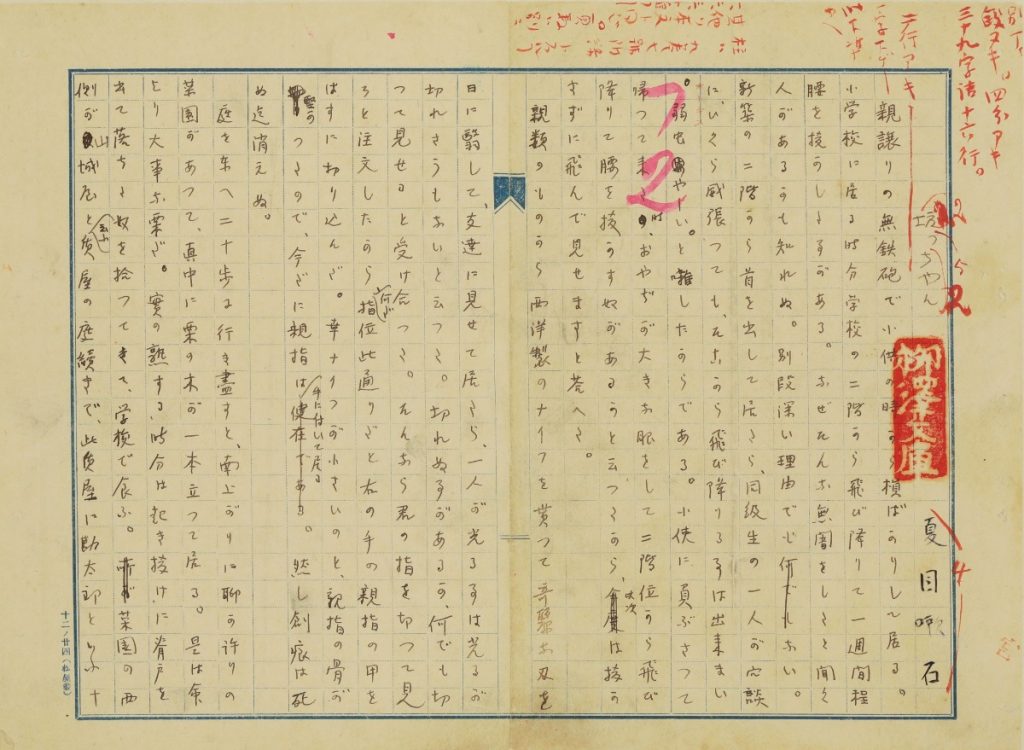 三十九字詰十六行。
二行アキ
坊つちやん
柳澤文庫
夏目漱石
親譲りの無鉄砲で小供の時から損ばかりして居る。
小学校に居る時分学校の二階から飛び降りて一週間程
腰を抜かした事がある。なぜそんな無闇をしたと聞く
人があるかも知れぬ。別段深い理由でも何でもない。
新築の二階から首を出して居たら、同級生の一人が冗談
に、いくら威張つても、そこから飛び降りる事は出来まい
。弱虫やーい。と囃したからである。小使に負ぶさつて
帰つて来た時、おやぢが大きな眼をして二階位から飛び
降りて腰を抜かす奴があるかと云つたから、此次は抜か
さずに飛んで見せますと答へた。
72
親類のものから西洋製のナイフを貰つて奇麗な刃を
日に翳して、友達に見せて居たら、一人が光る事は光るが
切れさうもないと云つた。切れぬ事があるか、何でも切
つて見せると受け合つた。そんなら君の指を切つて見
ろと注文したから何だ指位此通りだと右の手の親指の甲を
はすに切り込んだ。幸ナイフが小さいのと、親指の骨が
堅かつたので、今だに親指は手に付いて居る。然し創痕は死
ぬ迄消えぬ。
庭を東へ二十歩に行き盡すと、南上がりに聊か許りの
菜園があつて、真中に栗の木が一本立つて居る。是は命
より大事な栗だ。實の熟する時分は起き抜けに脊戸を
出て落ちた奴を拾つてきて、学校で食ふ。菜園の西
側が山城屋と云ふ質屋の庭續きで、此質屋に勘太郎といふ十
十二ノ廿四（松屋製）